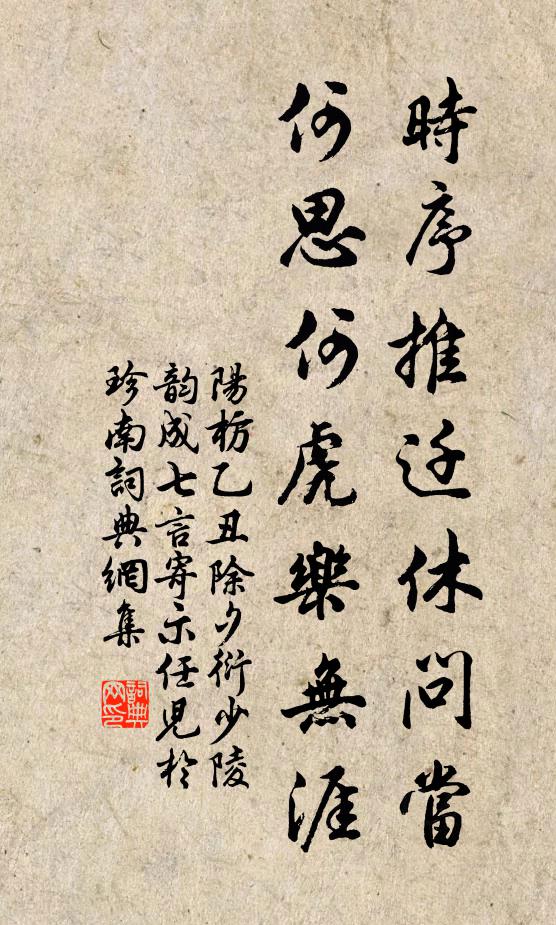 時序推迁休問當
何思何虎樂無涯
陽枋乙丑除夕衍少陵
韵成七言寄示任児於
珍南詞典網集
詞典网印